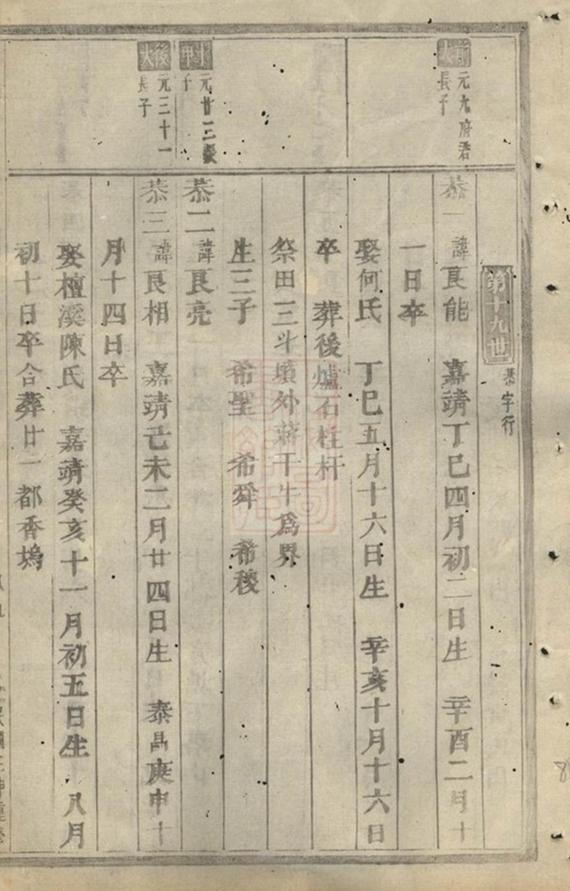 第十九世 恭字行
元九府君
長子
恭一 諱良能 嘉靖丁巳四月初二日生 辛酉二月十
一日卒
娶何氏 丁巳五月十六日生 辛亥十月十六日
卒 葬後爐石柱杆
祭田三斗墳外蔣干牛爲界
生三子 希聖 希舜 希稷
元廿三
子
恭二 諱良亮
後大
元三十一
長子
恭三 諱良相 嘉靖己未二月廿四日生 泰昌庚申十
月十四日卒
娶檀溪陳氏 嘉靖癸亥十一月初五日生 八月
初十日卒合葬廿一都香塢